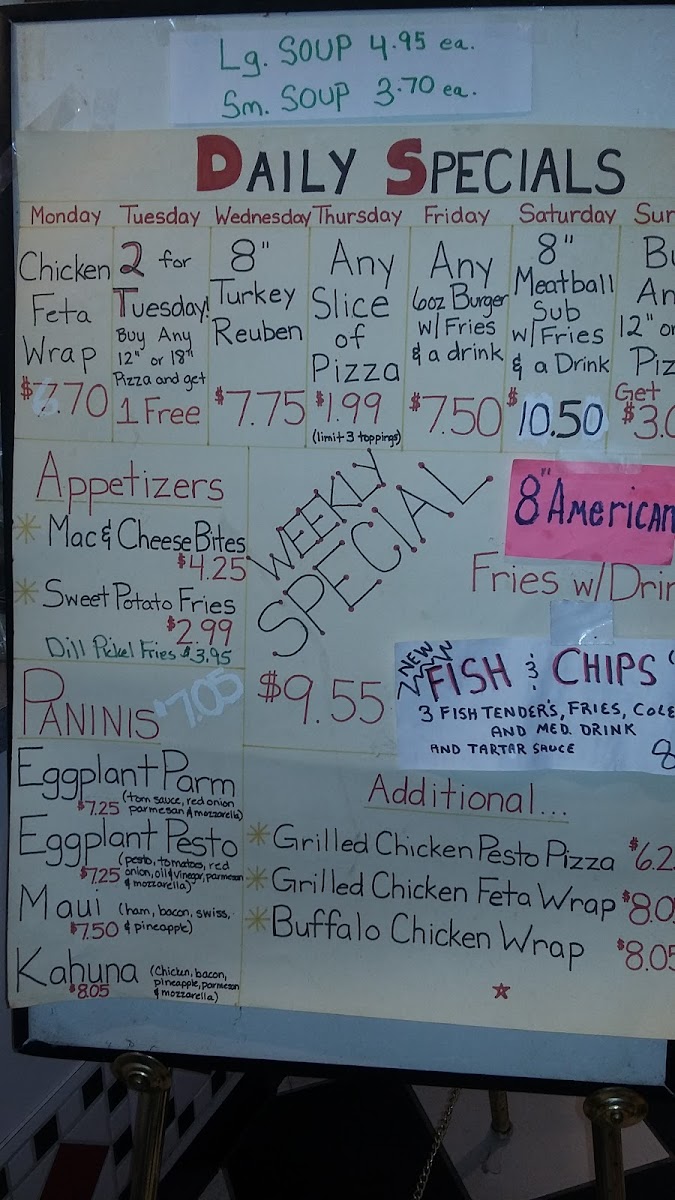 Lg. SOUP 4.95 ea.
Sm. SOUP 3.70 ea.
DAILY SPECIALS
Monday
Chicken
Feta
Wrap
.70
Tuesday
2 for
Tuesday!
Buy Any
12" or 18"
Pizza and get
1 Free
Wednesday
8"
Turkey
Reuben
$7.75
Thursday
Any
Slice
of
Pizza
$1.99
(limit 3 toppings)
Friday
Any
6oz Burger
w/Fries
& a drink
$7.50
Saturday
8"
Meatball
Sub
w/Fries
& a Drink
$10.50
Sun
Bu
An
12" or
Piz
Get
$3.0
Appetizers
Mac & Cheese Bites
$4.25
Sweet Potato Fries
$2.99
Dill Pickel Fries $3.95
WEEKLY
SPECIAL
$9.55
8" American
Fries w/Drin
NEW
FISH & CHIPS
3 FISH TENDER'S, FRIES, COLE
AND MED. DRINK
AND TARTAR SAUCE
8
PANINIS $7.05
Eggplant Parm
$7.25 (tom sauce, red onion
parmesan & mozzarella)
Eggplant Pesto
(pesto, tomatoes, red
$7.25 onion, oil & vinegar, parmesan
& mozzarella)
Maui (ham, bacon, swiss,
$7.50 & pineapple)
Kahuna (Chicken, bacon,
$8.05 pineapple, parmesan
& mozzarella)
Additional...
Grilled Chicken Pesto Pizza $6.2
Grilled Chicken Feta Wrap $8.0
Buffalo Chicken Wrap $8.05